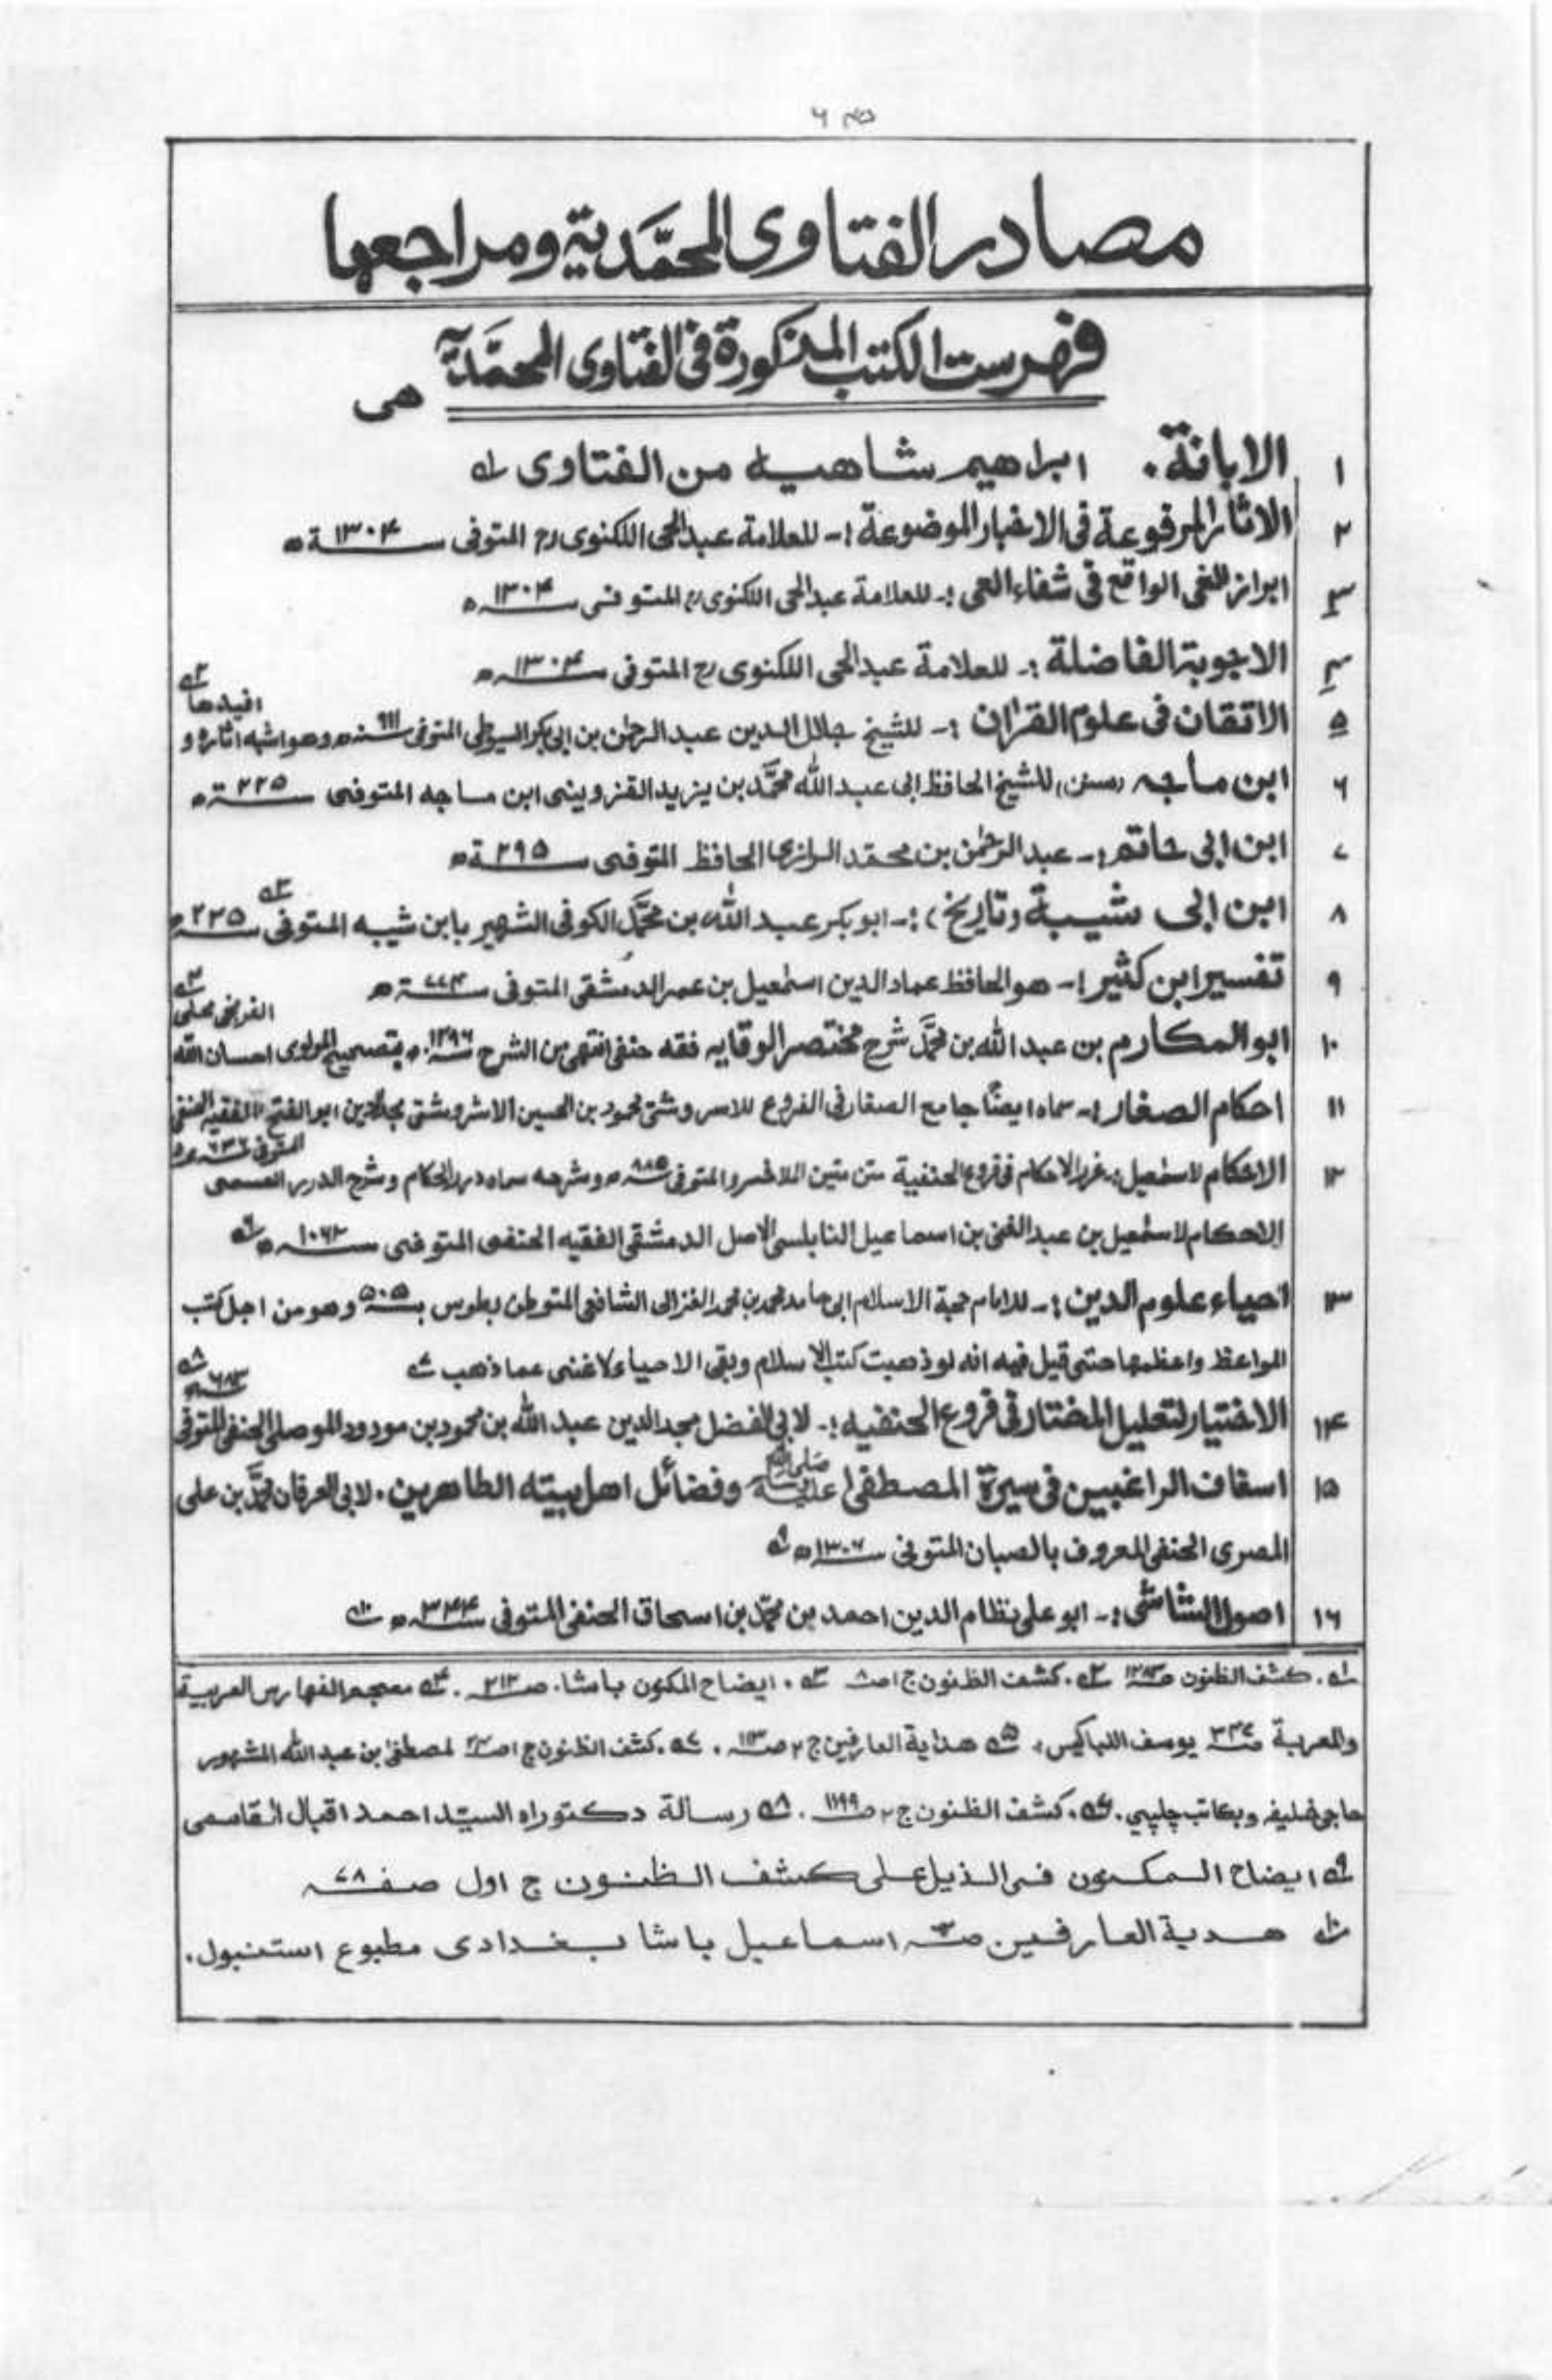 مصادر الفتاوى المحمَّدية ومراجعها
فهرست الكتب المذكورة فى الفتاوى المحمَّديَّة هى
١ الابانة. ابراهيم شاهيه من الفتاوى له
٢ الاثار المرفوعة فى الاخبار الموضوعة :- للعلامة عبد الحى اللكنوى رح المتوفى سنة ١٣٠۴ ه
٣ ابراز الغى الواقع فى شفاء العى :- للعلامة عبد الحى اللكنوى رح المتوفى سنه ١٣٠۴ ه
۴ الاجوبة الفاضلة :- للعلامة عبد الحى اللكنوى رح المتوفى سنه ١٣٠۴ ه
٥ الاتقان فى علوم القران :- للشيخ جلال الدين عبد الرحمٰن بن ابى بكر السيوطى المتوفى سنه ٩١١ ه وهو اشبه اثاره و افيدها
٦ ابن ماجه (سنن) للشيخ الحافظ ابى عبد الله محمَّد بن يزيد القزوينى ابن ماجه المتوفى سنة ٢٢٥ ه
٧ ابن ابى حاتم :- عبد الرحمٰن بن محمد الرازى الحافظ المتوفى سنة ٢٩٥ ه
٨ ابن ابى شيبة (تاريخ) :- ابو بكر عبد الله بن محمَّد الكوفى الشهير بابن شيبه المتوفى سنه ٢٣٥ ه
٩ تفسير ابن كثير :- هو الحافظ عماد الدين اسمٰعيل بن عمر الدمشقى المتوفى سنة ٧٧۴ ه
١٠ ابو المكارم بن عبد الله بن محمَّد شرح مختصر الوقايه فقه حنفى انتهى من الشرح سنه ه بتصحيح المولوى احسان الله الفرنجى محلى
١١ احكام الصغار :- سماه ايضًا جامع الصغار فى الفروع للاسروشنى محمود بن الحسين الاشروشنى مجد الدين ابو الفتح الفقيه الحنفى
المتوفى سنه ه
١٢ الاحكام لاسمٰعيل :- غرر الاحكام فى فروع الحنفية متن متين الملا خسرو المتوفى سنه ٨٨٥ ه وشرحه سماه درر الحكام وشرح الدرر المسمى
الاحكام لاسمٰعيل بن عبد الغنى بن اسماعيل النابلسى الاصل الدمشقى الفقيه الحنفى المتوفى سنه ١٠٦٢ ه
١٣ احياء علوم الدين :- للامام حجة الاسلام ابى حامد محمد بن محمد الغزالى الشافعى المتوطن بطوس بسنه ٥٠٥ وهو من اجل كتب
المواعظ واعظمها حتى قيل فيه انه لو ذهبت كتب الاسلام وبقى الاحياء لاغنى عما ذهب
١۴ الاختيار لتعليل المختار فى فروع الحنفيه :- لابى الفضل مجد الدين عبد الله بن محمود بن مودود الموصلى الحنفى المتوفى سنه ٦٨٣
١٥ اسعاف الراغبين فى سيرة المصطفىٰ صلى الله عليه وفضائل اهل بيته الطاهرين. لابى العرفان محمَّد بن على
المصرى الحنفى المعروف بالصبان المتوفى سنه ١٣٠٦ ه
١٦ اصول الشاشى :- ابو على نظام الدين احمد بن محمَّد بن اسحاق الحنفى المتوفى سنه ٣۴۴ ه
له. كشف الظنون كشف الظنون ج ١ ص ٨ ايضاح المكنون باشا. ص ٢١٣. معجم الفهارس العربية
والمعربة يوسف اللباكيس، هداية العارفين ج ٢ ص ١١٣. كشف الظنون ج ١ لمصطفىٰ بن عبد الله المشهور
حاجى خليفه وبكاتب چلپي. كشف الظنون ج ٢ ص ١١٩٩. رسالة دكتوراه السيّد احمد اقبال القاسمى
ايضاح المكنون فى الذيل على كشف الظنون ج اول صفه ٧٨
هدية العارفين اسماعيل باشا بغدادى مطبوع استنبول.